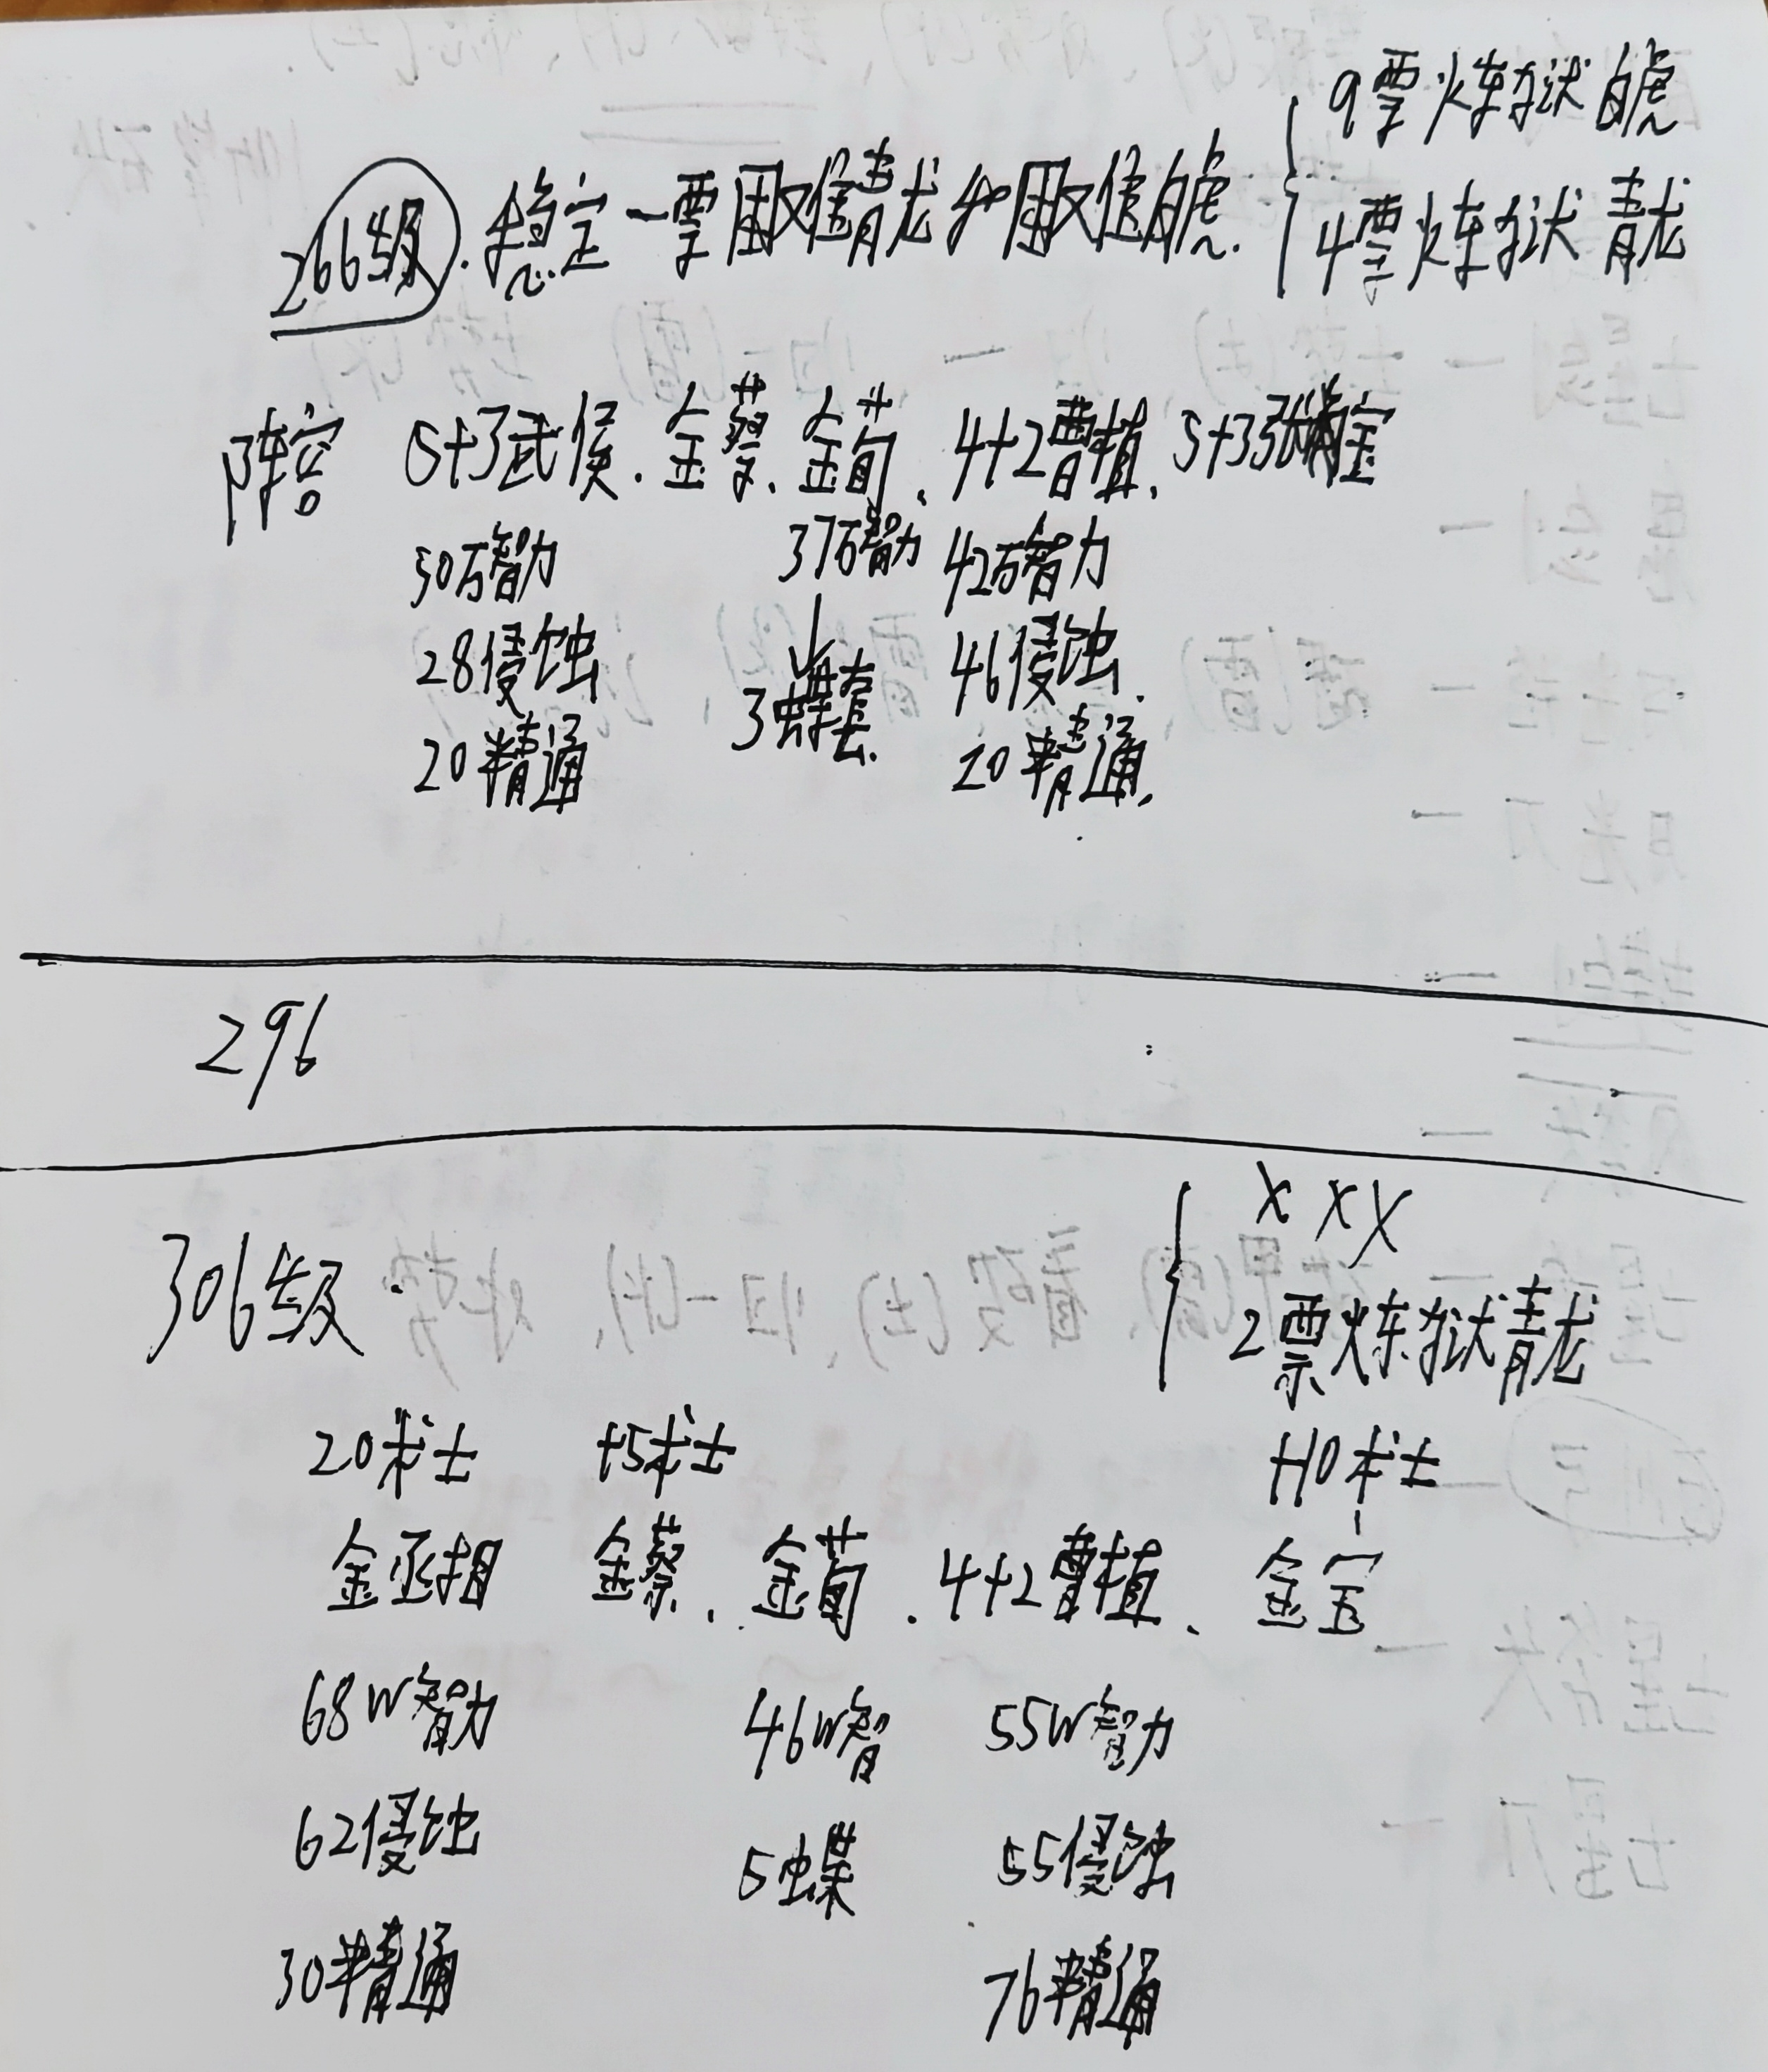 9票炼狱白虎
266级. 稳定一票困难青龙和困难白虎.
4票炼狱青龙
阵容 5+3武侯. 金蔡、金荀、4+2曹植、5+3张宝
50万智力 37万智力 42万智力
28侵蚀 ↓ 46侵蚀.
3蝶套.
20精通 20精通.
296
306级.
X X X
2票炼狱青龙
20术士 +5术士 +10术士
金丞相 金蔡、金荀. 4+2曹植、金宝
68W智力 46W智 55W智力
62侵蚀 5蝶 55侵蚀
30精通 76精通